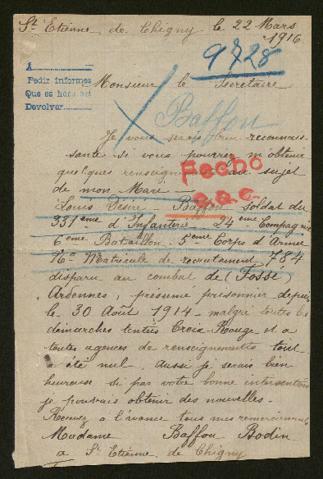 St Etienne de Chigny le 22 Mars
1916
9728
A
Pedir informes
Que es hora
Devolver
Monsieur le Secretaire
Baffou
Je vous serais bien reconnais-
sante si vous pourrez m'obtenir
quelques renseignements au sujet
Fecho
de mon Mari
Louis Désiré Baffou soldat du
331ème d'Infanterie 24ème Compagnie
6ème Bataillon 5ème Corps d'Armée
No Matricule de recrutement 784
disparu au combat de (Fossé
Ardennes) présumé prisonnier depuis
le 30 Août 1914 malgré toutes les
démarches tentées Croix Rouge et a
toutes agences de renseignements tout
a été nul. aussi je serais bien
heureuse si par votre bonne intervention
je pouvais obtenir des nouvelles.
Recevez a l'avance tous mes remerciements
Madame Baffou Bodin
a St Etienne de Chigny